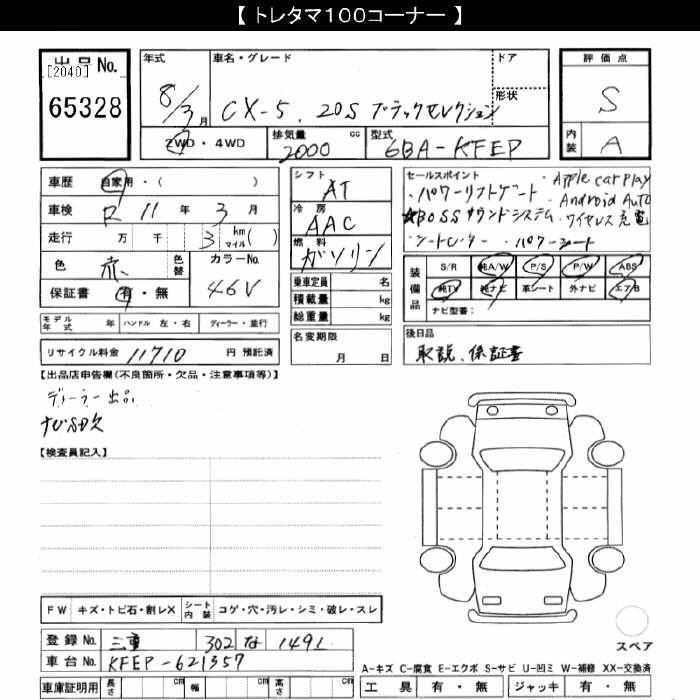 【 トレタマ100コーナー 】
出品No.
[2040]
65328
年式
8/3月
車名・グレード
CX-5 20S ブラックセレクション
ドア
形状
2WD・4WD
排気量 cc
2000
型式
6BA-KFEP
評価点
S
内装
A
車歴 自家用・( )
車検 R 11年 3月
走行 万 千 3 km マイル( )
色 赤 色替
カラーNo.
46V
保証書 有・無
モデル年式 年 ハンドル 左・右 ディーラー・並行
リサイクル料金 11710 円 預託済
シフト
AT
冷房
AAC
燃料
ガソリン
乗車定員 名
積載量 kg
総重量 kg
名変期限
月 日
セールスポイント
・Apple carplay
・パワーリフトゲート ・Android Auto
★BOSSサウンドシステム ・ワイヤレス充電
・シートヒーター ・パワーシート
装備品
S/R 純A/W P/S P/W ABS
純TV 純ナビ 革シート 外ナビ エアB
ナビ型番:
後日品
取説、保証書
【出品店申告欄(不良箇所・欠品・注意事項等)】
ディーラー出品
ナビSD欠
【検査員記入】
FW キズ・トビ石・割レX シート内装 コゲ・穴・汚レ・シミ・破レ・スレ
登録No. 三重 302 な 1491
車台No. KFEP-621357
車庫証明用 長さ cm 幅 cm 高さ cm
スペア
A-キズ C-腐食 E-エクボ S-サビ U-凹ミ W-補修 XX-交換済
工具 有・無 ジャッキ 有・無